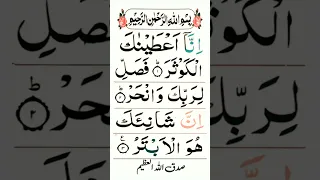 بِسْمِ اللهِ الرَّحْمٰنِ الرَّحِيْمِ
اِنَّاۤ اَعْطَيْنٰكَ
الْكَوْثَرَ ۝ فَصَلِّ
لِرَبِّكَ وَانْحَرْ ۝۲
اِنَّ شَانِئَكَ
هُوَ الْاَبْتَرُ ۝
صدق الله العظيم